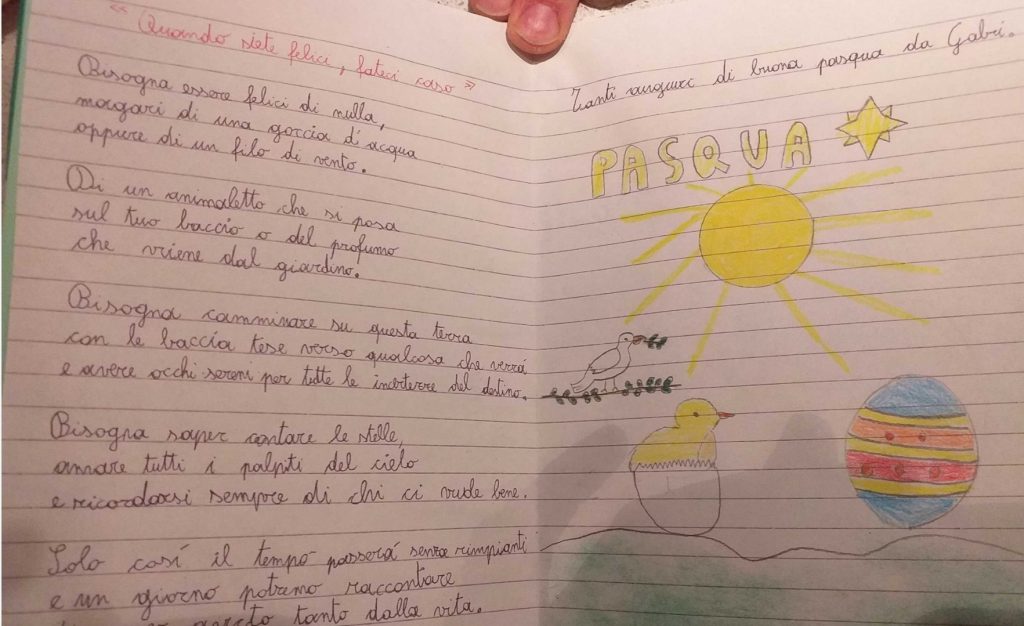 « Quando siete felici, fateci caso »
Bisogna essere felici di nulla,
magari di una goccia d'acqua
oppure di un filo di vento.
Di un animaletto che si posa
sul tuo baccio o del profumo
che vriene dal giardino.
Bisogna camminare su questa terra
con le baccia tese verso qualcosa che verrá
e avere occhi sereni per tutte le incerterre del destino.
Bisogna saper contare le stelle,
amare tutti i palpiti del cielo
e ricordarsi sempre di chi ci vuole bene.
Solo casí il tempo passerá senza rimpianti
e un giorno potremo raccontare
tanto dalla vita.
Tanti auguri di buona pasqua da Gabri.
PASQUA